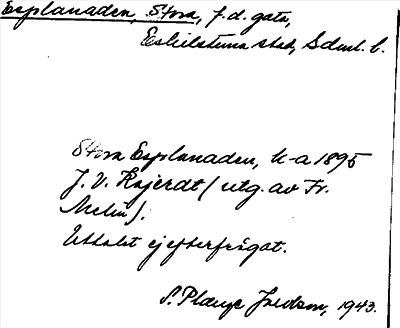 Esplanaden, Stora, f.d. gata,
Eskilstuna stad, Sdml. l.
Stora Esplanaden, k-a 1895
J. V. Kajerdt (utg. av Fr.
Melin).
Uttalet ej efterfrågat.
S. Plange 1943.